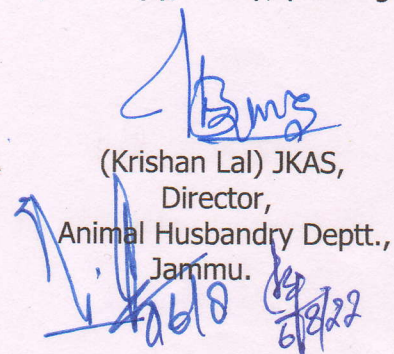 (Krishan Lal) JKAS,
Director,
Animal Husbandry Deptt.,
Jammu.
6/8/22